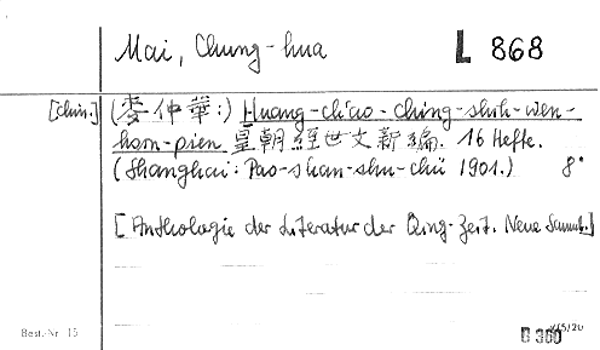 Mai, Chung-hua L 868
[chin.] (麥仲華:) Huang-ch'ao-ching-shih-wen-
hsin-pien 皇朝經世文新編. 16 Hefte.
(Shanghai: Pao-shan-shu-chü 1901.) 8°
[Anthologie der Literatur der Qing-Zeit. Neue Samml.]
Best.-Nr. 15